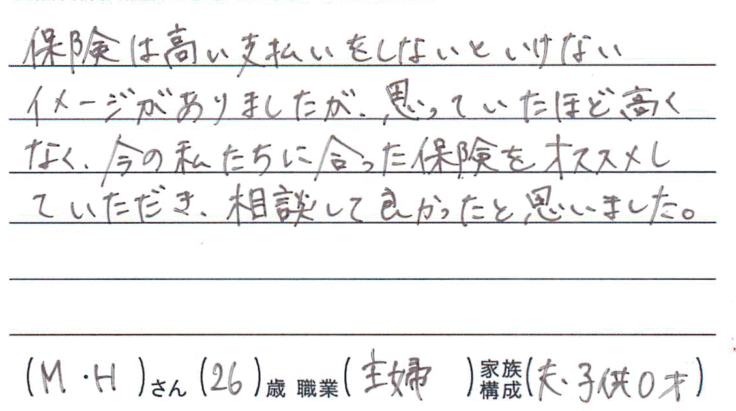 保険は高い支払いをしないといけない
イメージがありましたが、思っていたほど高く
なく、今の私たちに合った保険をオススメし
ていただき、相談して良かったと思いました。
(M・H)さん(26)歳 職業(主婦)家族構成(夫、子供0才)